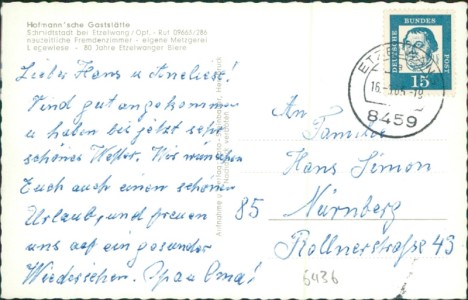 Hofmann'sche Gaststätte
Schmidtstadt bei Etzelwang/Opf. - Ruf 09663/286
neuzeitliche Fremdenzimmer - eigene Metzgerei
Liegewiese - 80 Jahre Etzelwanger Biere
Liebe Hans u Anneliese!
Sind gut angekommen
u haben bis jetzt sehr
schönes Wetter. Wir wünschen
Euch auch einen schönen
Urlaub, und freuen
uns auf ein gesundes
Wiedersehen. Opa u Oma!
DEUTSCHE BUNDES POST
15
8459
An
Familie
Hans Simon
85 Nürnberg
Rollnerstraße 43
6436